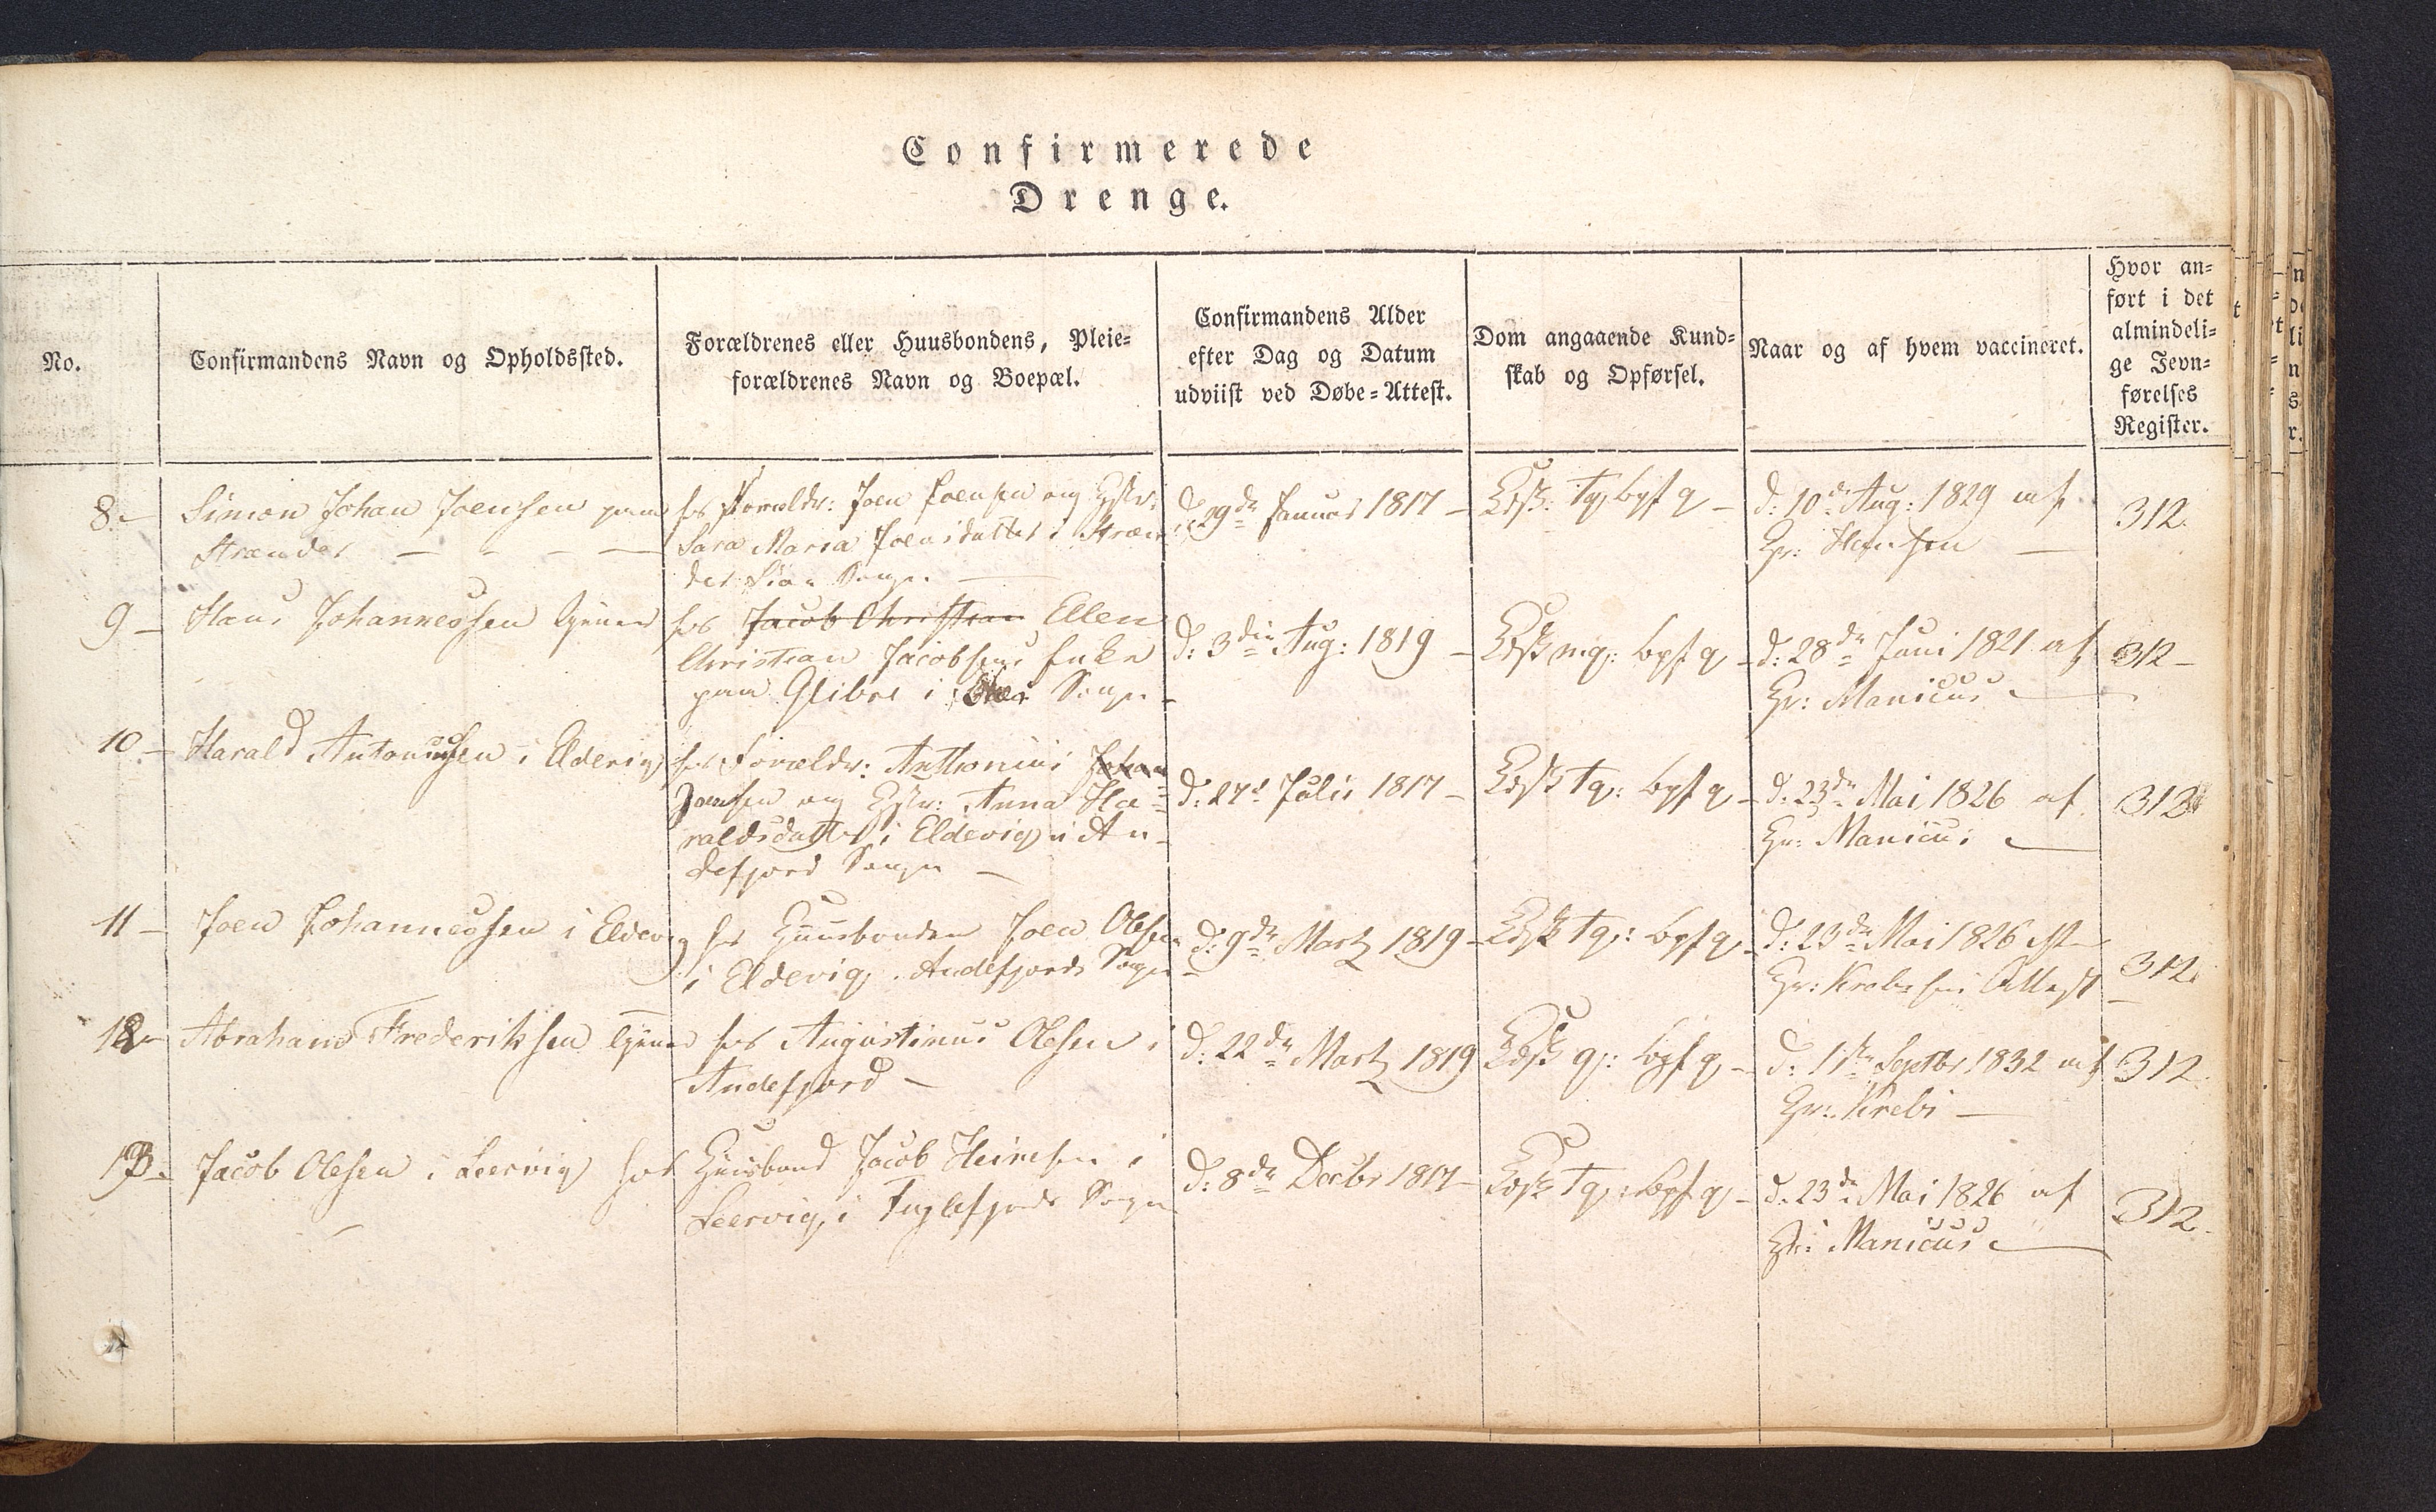 Confirmerede
Drenge.
No.
Confirmandens Navn og Opholdssted.
Forældrenes eller Huusbondens, Pleie=
forældrenes Navn og Boepæl.
Confirmandens Alder
efter Dag og Datum
udviist ved Døbe=Attest.
Dom angaaende Kund=
skab og Opførsel.
Naar og af hvem vaccineret.
Hvor an=
ført i det
almindeli=
ge Jevn=
førelses
Register.
8.
Simon Johan Joensen paa
Strænder
hos Forældr: Joen Joensen og Hstr:
Sara Maria Joensdatter i Stræn
der Sogn
d: 29de Januar 1817
Kdsk: tg: Opf g
d: 10de Aug: 1829 af
Hr: Hansen
312.
9
Hans Johannessen tjener
hos Jacob Christian Ellen
Christian Jacobsens Enke
paa Glibre i Sogn
d: 3die Aug: 1819
Kdsk mg: Opf g
d: 28de Juni 1821 af
Hr: Manicus
312
10
Harald Antoniussen i Eldevig
hos Forældr: Anthonius Johan
Joensen og Hstr: Anna Ha=
raldsdatter i Eldevig i An
defjord Sogn
d: 27d Julii 1817
Kdsk tg: Opf g
d: 23de Mai 1826 af
Hr: Manicus
312
11
Joen Johannessen i Eldevig
hos Huusbonden Joen Olesen
i Eldevig Andefjords Sogn
d: 9de Martz 1819
Kdsk tg: Opf g
d: 23de Mai 1826
Hr: Krebs Attest
312.
12
Abraham Frederiksen tjener
hos Augustinus Olesen i
Andefjord
d: 22de Martz 1819
Kdsk g: Opf g
d: 1ste Septbr 1832 af
Hr: Krebs
312.
13
Jacob Olesen i Leervig
hos Huusbond Jacob Heinesen i
Leervig, i Fuglefjords Sogn
d: 8de Decbr 1817
Kdsk tg: Opf g
d: 23de Mai 1826 af
Hr: Manicus
312.